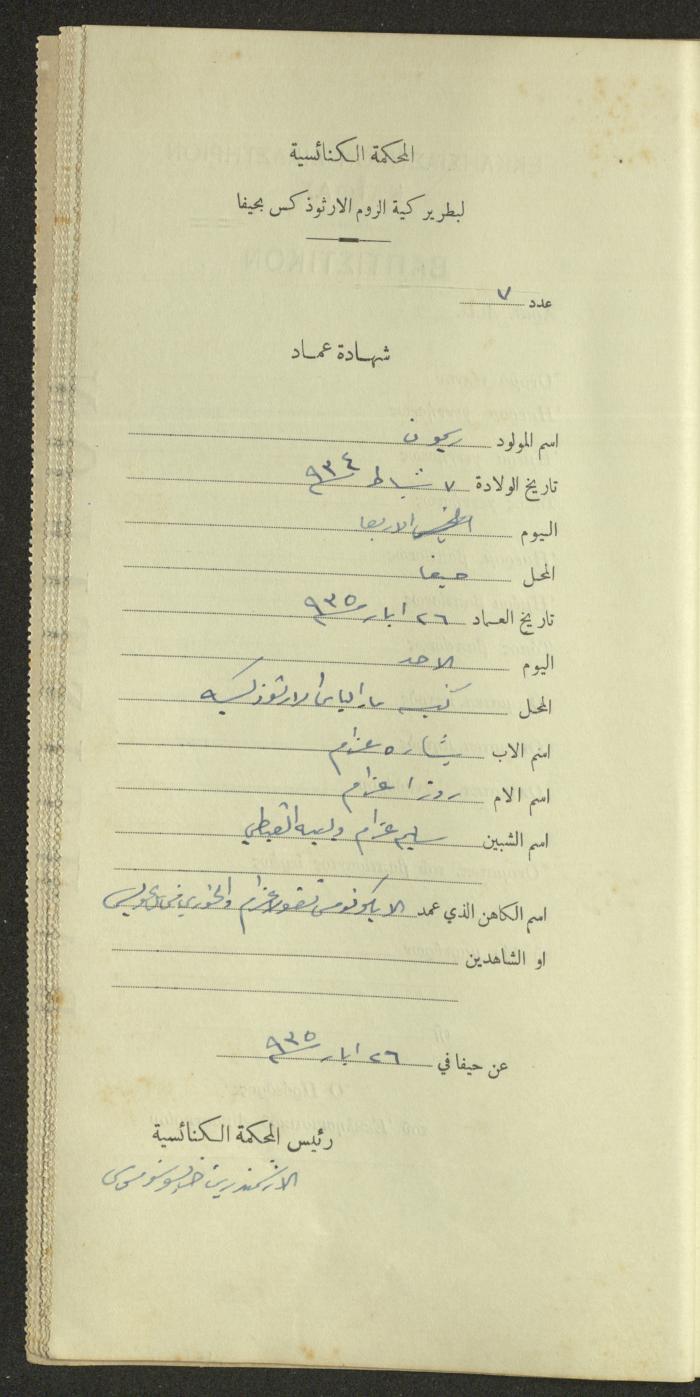 المحكمة الكنائسية
لبطريركية الروم الارثوذكس بحيفا
عدد ٧
شهادة عماد
اسم المولود ريمون
تاريخ الولادة ٧ شباط ٩٣٤
اليوم الاربعا
المحل حيفا
تاريخ العماد ٢٦ ايار ٩٣٥
اليوم الاحد
المحل كنيسة مار الياس الارثوذكسيه
اسم الاب بشاره عزام
اسم الام روزا عزام
اسم الشبين سليم عزام و القبطي
اسم الكاهن الذي عمد الايكونوموس نقولا عزام والخوري
او الشاهدين
عن حيفا في ٢٦ ايار ٩٣٥
رئيس المحكمة الكنائسية
الارشمندريت